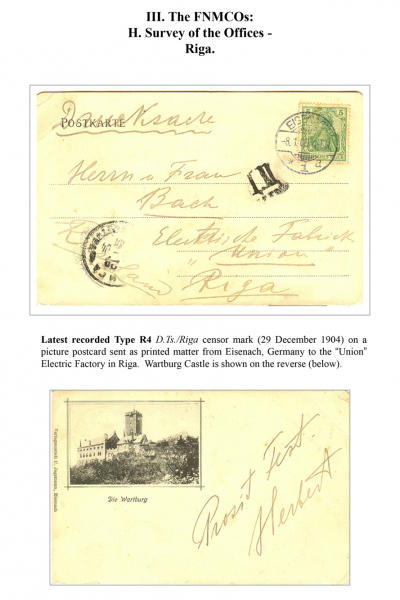 III. The FNMCOs:
H. Survey of the Offices -
Riga.
Drucksache
POSTKARTE
5
Herrn u Frau
Bach
Electrische Fabrick
"Union"
Riga
Latest recorded Type R4 D.Ts./Riga censor mark (29 December 1904) on a
picture postcard sent as printed matter from Eisenach, Germany to the "Union"
Electric Factory in Riga.  Wartburg Castle is shown on the reverse (below).
Die Wartburg
Prosit Fest.
Herbert